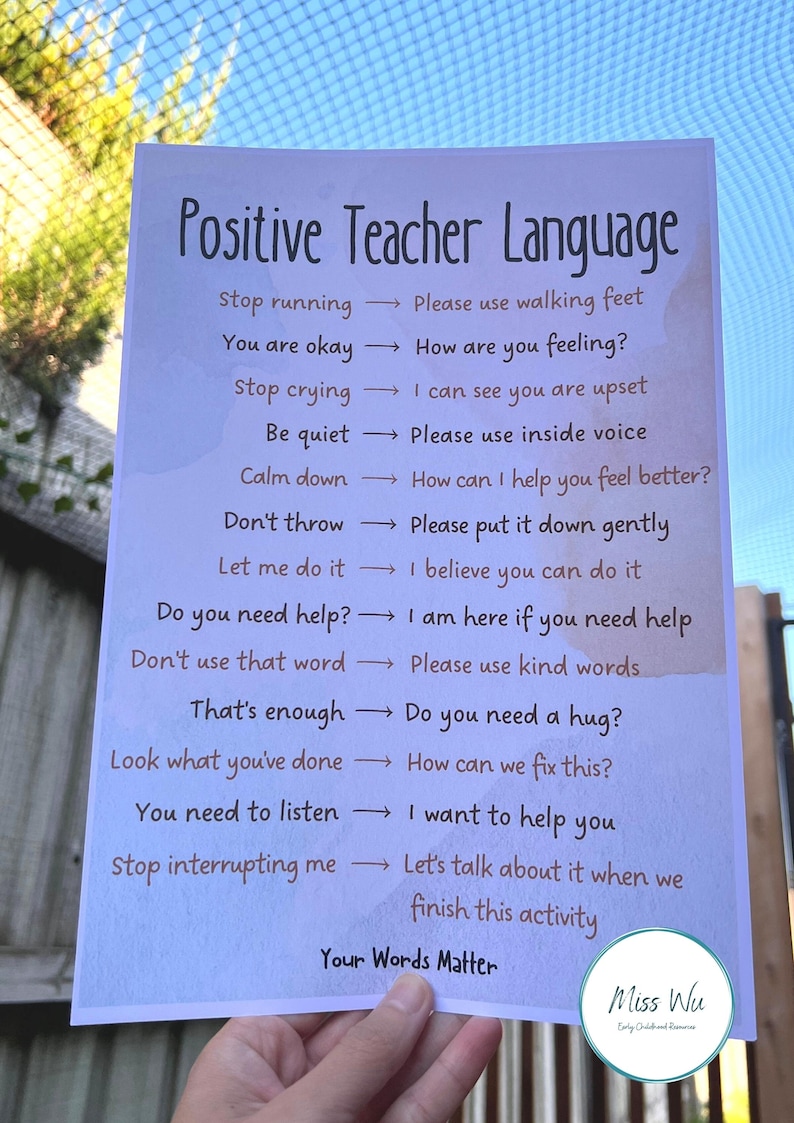 Positive Teacher Language
Stop running → Please use walking feet
You are okay → How are you feeling?
Stop crying → I can see you are upset
Be quiet → Please use inside voice
Calm down → How can I help you feel better?
Don't throw → Please put it down gently
Let me do it → I believe you can do it
Do you need help? → I am here if you need help
Don't use that word → Please use kind words
That's enough → Do you need a hug?
Look what you've done → How can we fix this?
You need to listen → I want to help you
Stop interrupting me → Let's talk about it when we
finish this activity
Your Words Matter
Miss Wu
Early Childhood Resources